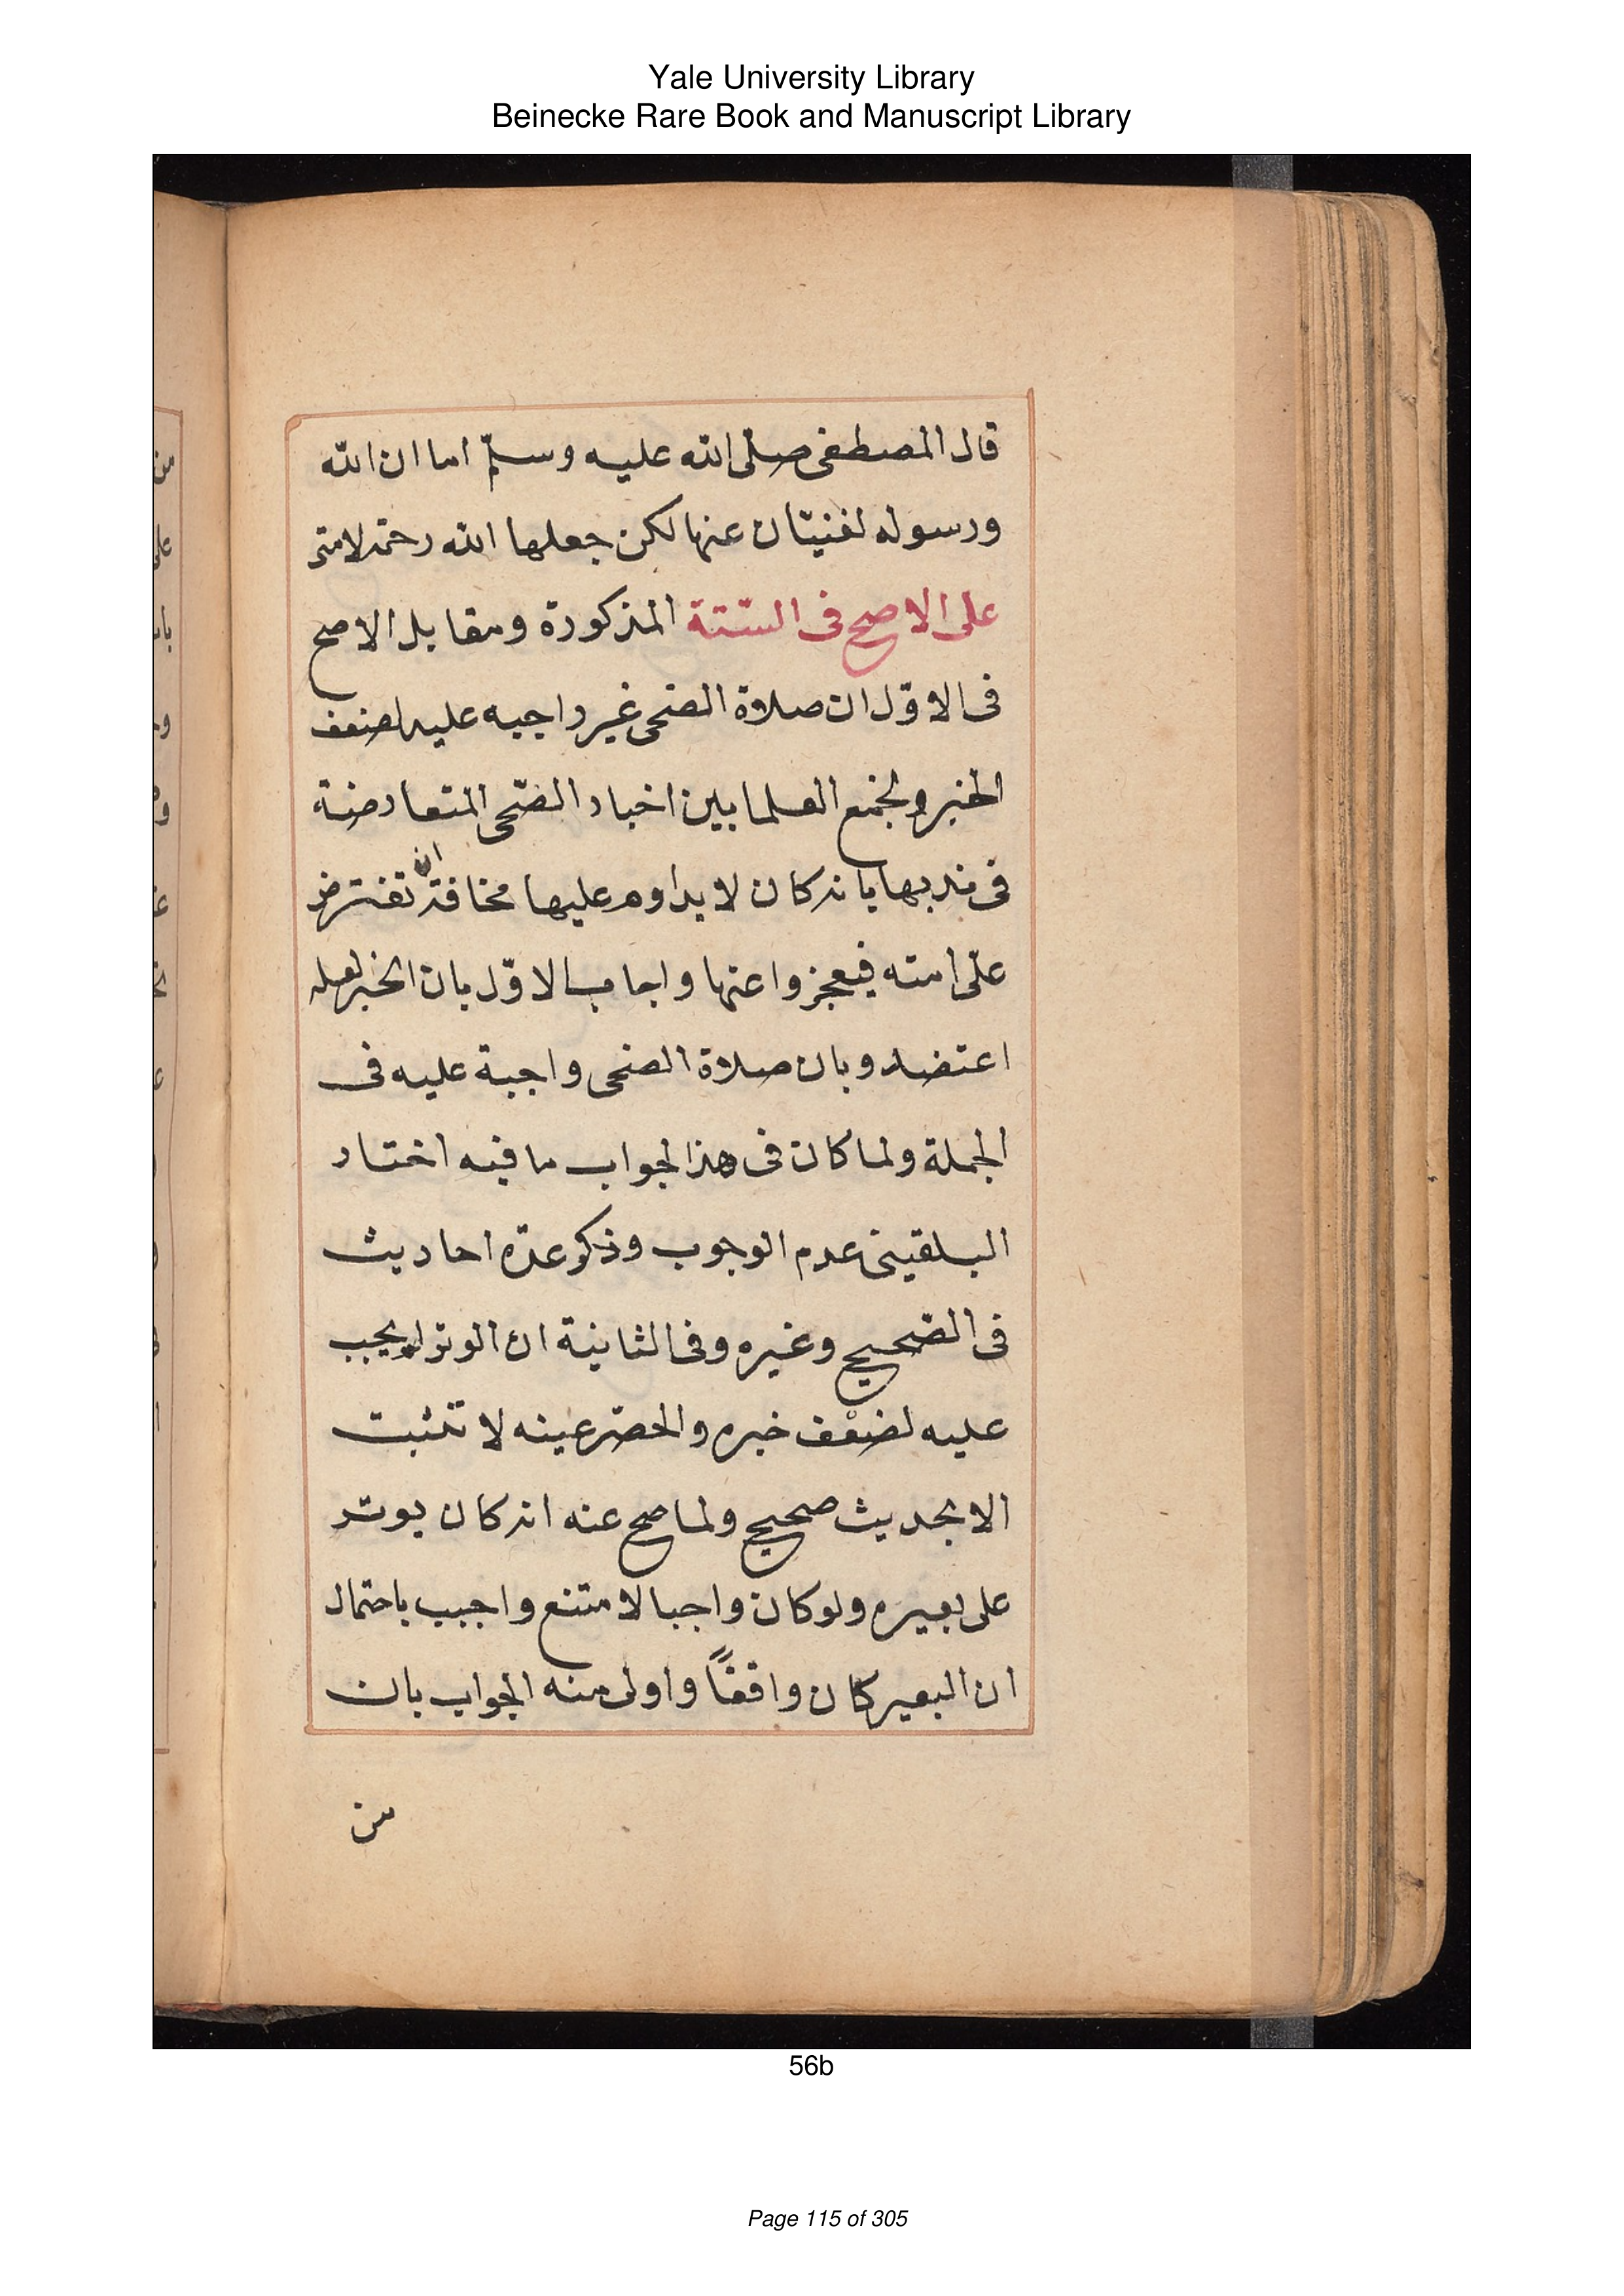 Yale University Library
Beinecke Rare Book and Manuscript Library
قال المصطفى صلى الله عليه وسلّم اما ان الله
ورسوله لغنيّان عنها لكن جعلها الله رحمة لامتى
على الاصح فى الستّة المذكورة ومقابل الاصح
فى الاوّل ان صلاة الضحى غير واجبه عليه لضعف
الخبر ولجمع العلما بين اخبار الضّحى المتعارضة
فى ندبها بانه كان لا يداوم عليها مخافة ان تفترض
على امته فيعجزوا عنها واجاب الاوّل بان الخبر لعله
اعتضد وبان صلاة الضحى واجبة عليه فى
الجملة ولما كان فى هذا لجواب ما فيه اختار
البلقينى عدم الوجوب وذكر عدّه احاديث
فى الصّحيح وغيره وفى الثانية ان الوتر لم يجب
عليه لضعف خبره والخصّرعينه لا تثبت
الا بحديث صحيح ولما صح عنه انه كان يوتر
على بعيره ولو كان واجبا لامتنع واجيب باحتمال
ان البعير كان واقفًا واولى منه الجواب بان
من
56b
Page 115 of 305